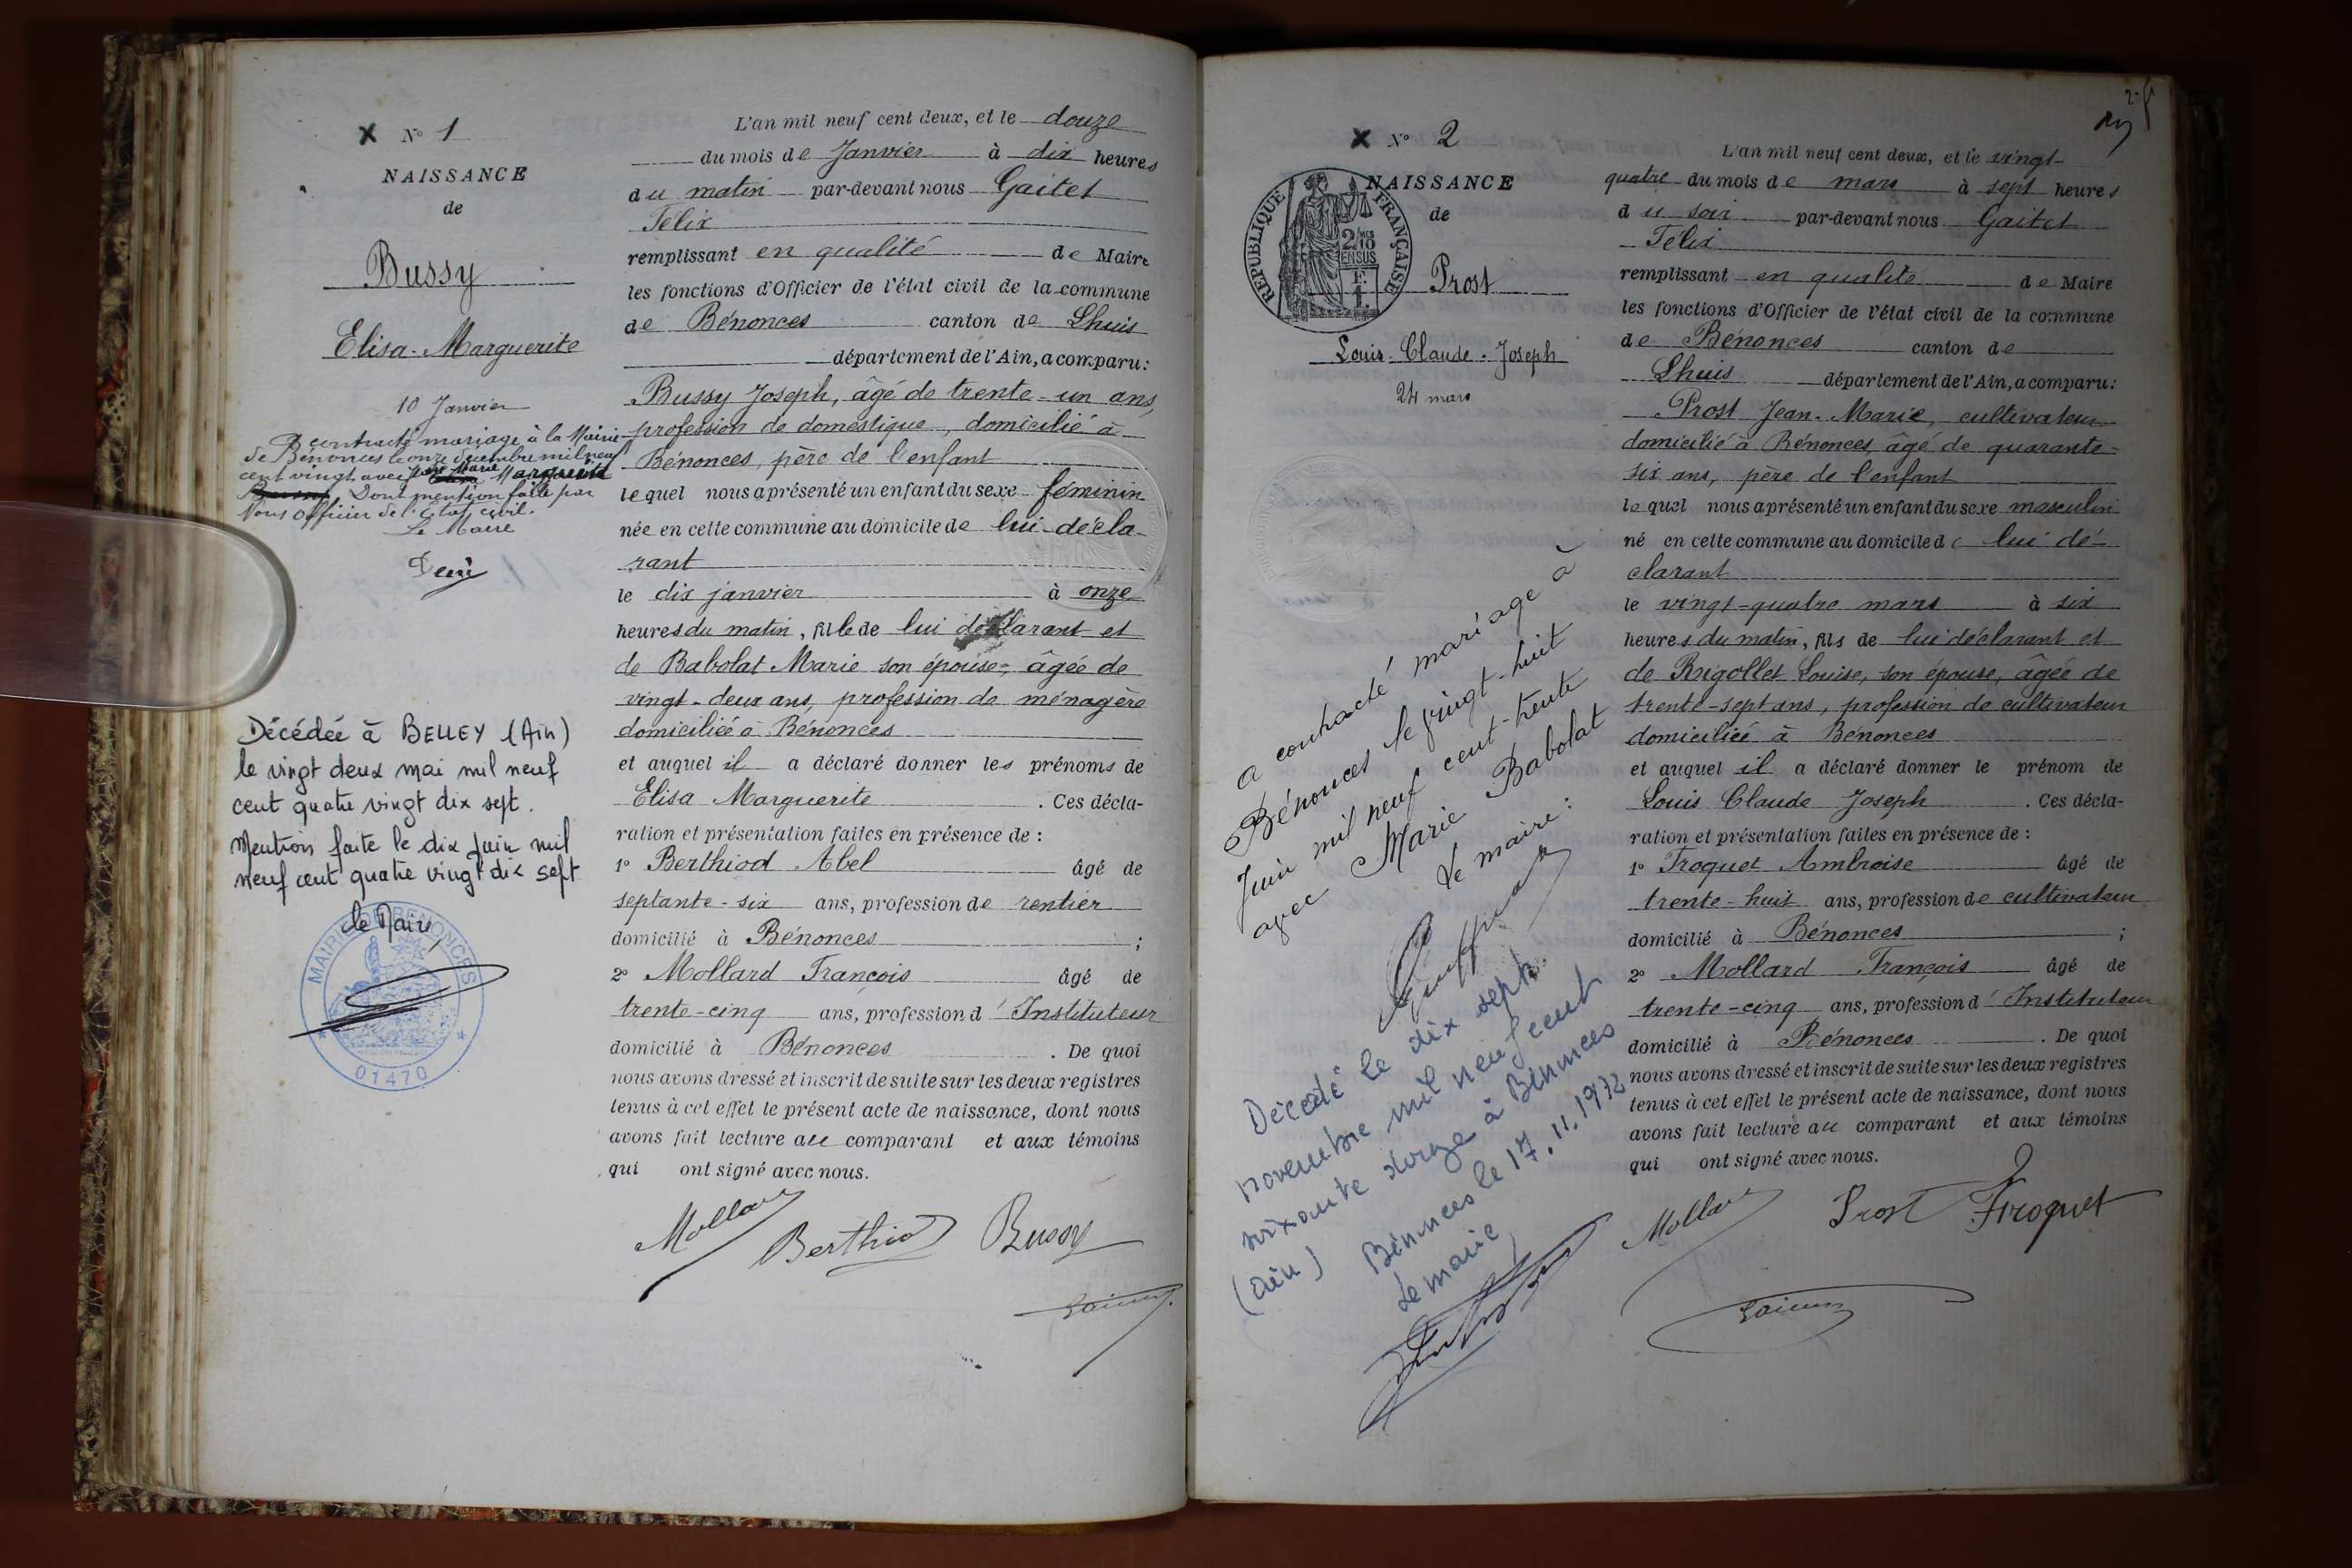 x N° 1
NAISSANCE
de
Bussy
Elisa-Marguerite
10 Janvier
contracté mariage à la Mairie
de Bénonces le onze décembre mil neuf
cent vingt avec Marie Marguerite
Dont mention faite par
Nous officier de l'Etat civil.
Le Maire
Décédée à BELLEY (Ain)
le vingt deux mai mil neuf
cent quatre vingt dix sept.
Mention faite le dix juin mil
neuf cent quatre vingt dix sept
le Maire,
MAIRIE DE BENONCES
01470
L'an mil neuf cent deux, et le douze
du mois de Janvier à dix heures
du matin par-devant nous Gaitet
Félix
remplissant en qualité de Maire
les fonctions d'Officier de l'état civil de la commune
de Bénonces canton de Lhuis
département de l'Ain, a comparu:
Bussy Joseph, âgé de trente-un ans,
profession de domestique, domicilié à
Bénonces, père de l'enfant
lequel nous a présenté un enfant du sexe féminin
née en cette commune au domicile de lui décla-
rant
le dix janvier à onze
heures du matin, fille de lui déclarant et
de Babolat Marie son épouse, âgée de
vingt-deux ans, profession de ménagère
domiciliée à Bénonces
et auquel il a déclaré donner les prénoms de
Elisa Marguerite. Ces décla-
ration et présentation faites en présence de :
1° Berthiod Abel âgé de
septante-six ans, profession de rentier
domicilié à Bénonces ;
2° Mollard François âgé de
trente-cinq ans, profession d'Instituteur
domicilié à Bénonces. De quoi
nous avons dressé et inscrit de suite sur les deux registres
tenus à cet effet le présent acte de naissance, dont nous
avons fait lecture au comparant et aux témoins
qui ont signé avec nous.
Mollard Berthiod Bussy
x N° 2
NAISSANCE
de
REPUBLIQUE FRANÇAISE
2/10 MES
EN SUS
F.
1.
Prost
Louis-Claude-Joseph
24 mars
a contracté mariage à
Bénonces le vingt-huit
Juin mil neuf cent-trente
avec Marie Babolat
Le maire:
Décédé le dix sept
novembre mil neuf cent
soixante douze à Bénonces
(Ain)
Bénonces le 17.11.1972
Le maire,
L'an mil neuf cent deux, et le vingt-
quatre du mois de mars à sept heures
du soir par-devant nous Gaitet
Félix
remplissant en qualité de Maire
les fonctions d'Officier de l'état civil de la commune
de Bénonces canton de
Lhuis département de l'Ain, a comparu:
Prost Jean-Marie, cultivateur
domicilié à Bénonces, âgé de quarante-
six ans, père de l'enfant
lequel nous a présenté un enfant du sexe masculin
né en cette commune au domicile de lui dé-
clarant
le vingt-quatre mars à six
heures du matin, fils de lui déclarant et
de Rigollet Louise, son épouse, âgée de
trente-sept ans, profession de cultivateur
domiciliée à Bénonces
et auquel il a déclaré donner le prénom de
Louis Claude Joseph. Ces décla-
ration et présentation faites en présence de :
1° Froquet Ambroise âgé de
trente-huit ans, profession de cultivateur
domicilié à Bénonces ;
2° Mollard François âgé de
trente-cinq ans, profession d'Instituteur
domicilié à Bénonces. De quoi
nous avons dressé et inscrit de suite sur les deux registres
tenus à cet effet le présent acte de naissance, dont nous
avons fait lecture au comparant et aux témoins
qui ont signé avec nous.
Mollard Prost Froquet